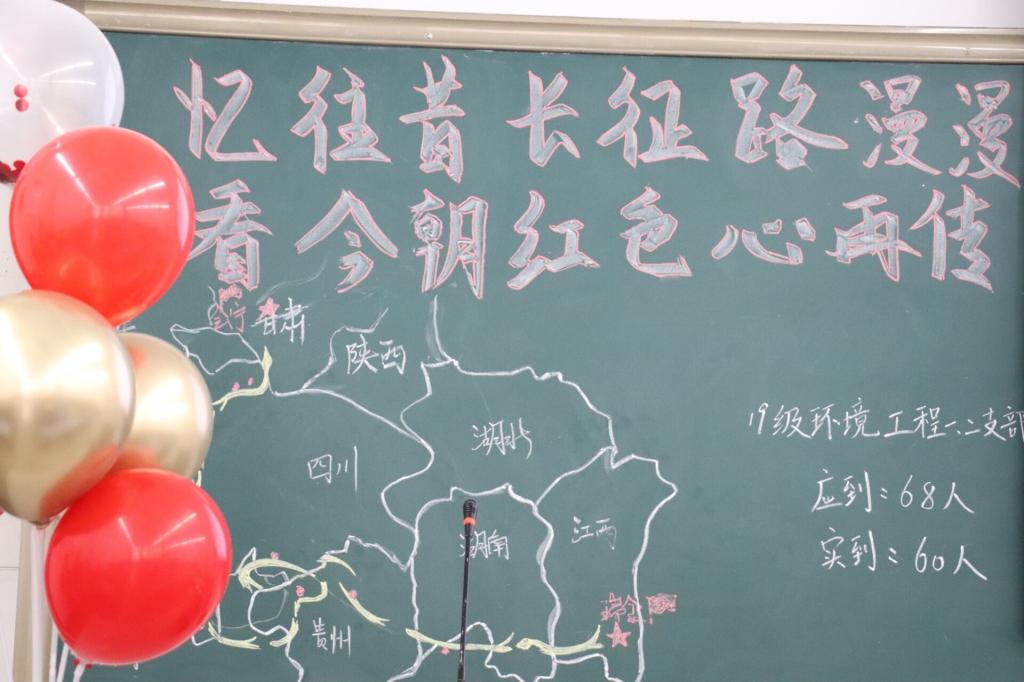 忆往昔长征路漫漫
看今朝红色心再传
会宁
甘肃
陕西
湖北
四川
湖南
江西
贵州
瑞金
19级环境工程一、二支部
应到：68人
实到：60人